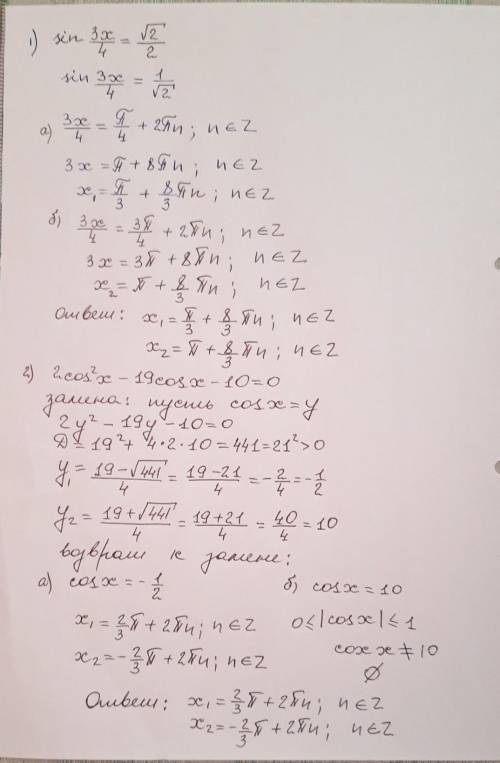 1) sin 3x/4 = √2/2
sin 3x/4 = 1/√2
а) 3x/4 = π/4 + 2πn; n∈Z
3x = π + 8πn; n∈Z
x₁ = π/3 + 8/3 πn; n∈Z
б) 3x/4 = 3π/4 + 2πn; n∈Z
3x = 3π + 8πn; n∈Z
x₂ = π + 8/3 πn; n∈Z
Ответ: x₁ = π/3 + 8/3 πn; n∈Z
x₂ = π + 8/3 πn; n∈Z
2) 2cos²x − 19cosx − 10 = 0
замена: пусть cosx = y
2y² − 19y − 10 = 0
D = 19² + 4·2·10 = 441 = 21² > 0
y₁ = (19 − √441)/4 = (19 − 21)/4 = −2/4 = −1/2
y₂ = (19 + √441)/4 = (19 + 21)/4 = 40/4 = 10
возврат к замене:
а) cosx = −1/2 б) cosx = 10
x₁ = 2/3 π + 2πn; n∈Z 0 ≤ |cosx| ≤ 1
x₂ = −2/3 π + 2πn; n∈Z cox x ≠ 10
∅
Ответ: x₁ = 2/3 π + 2πn; n∈Z
x₂ = −2/3 π + 2πn; n∈Z